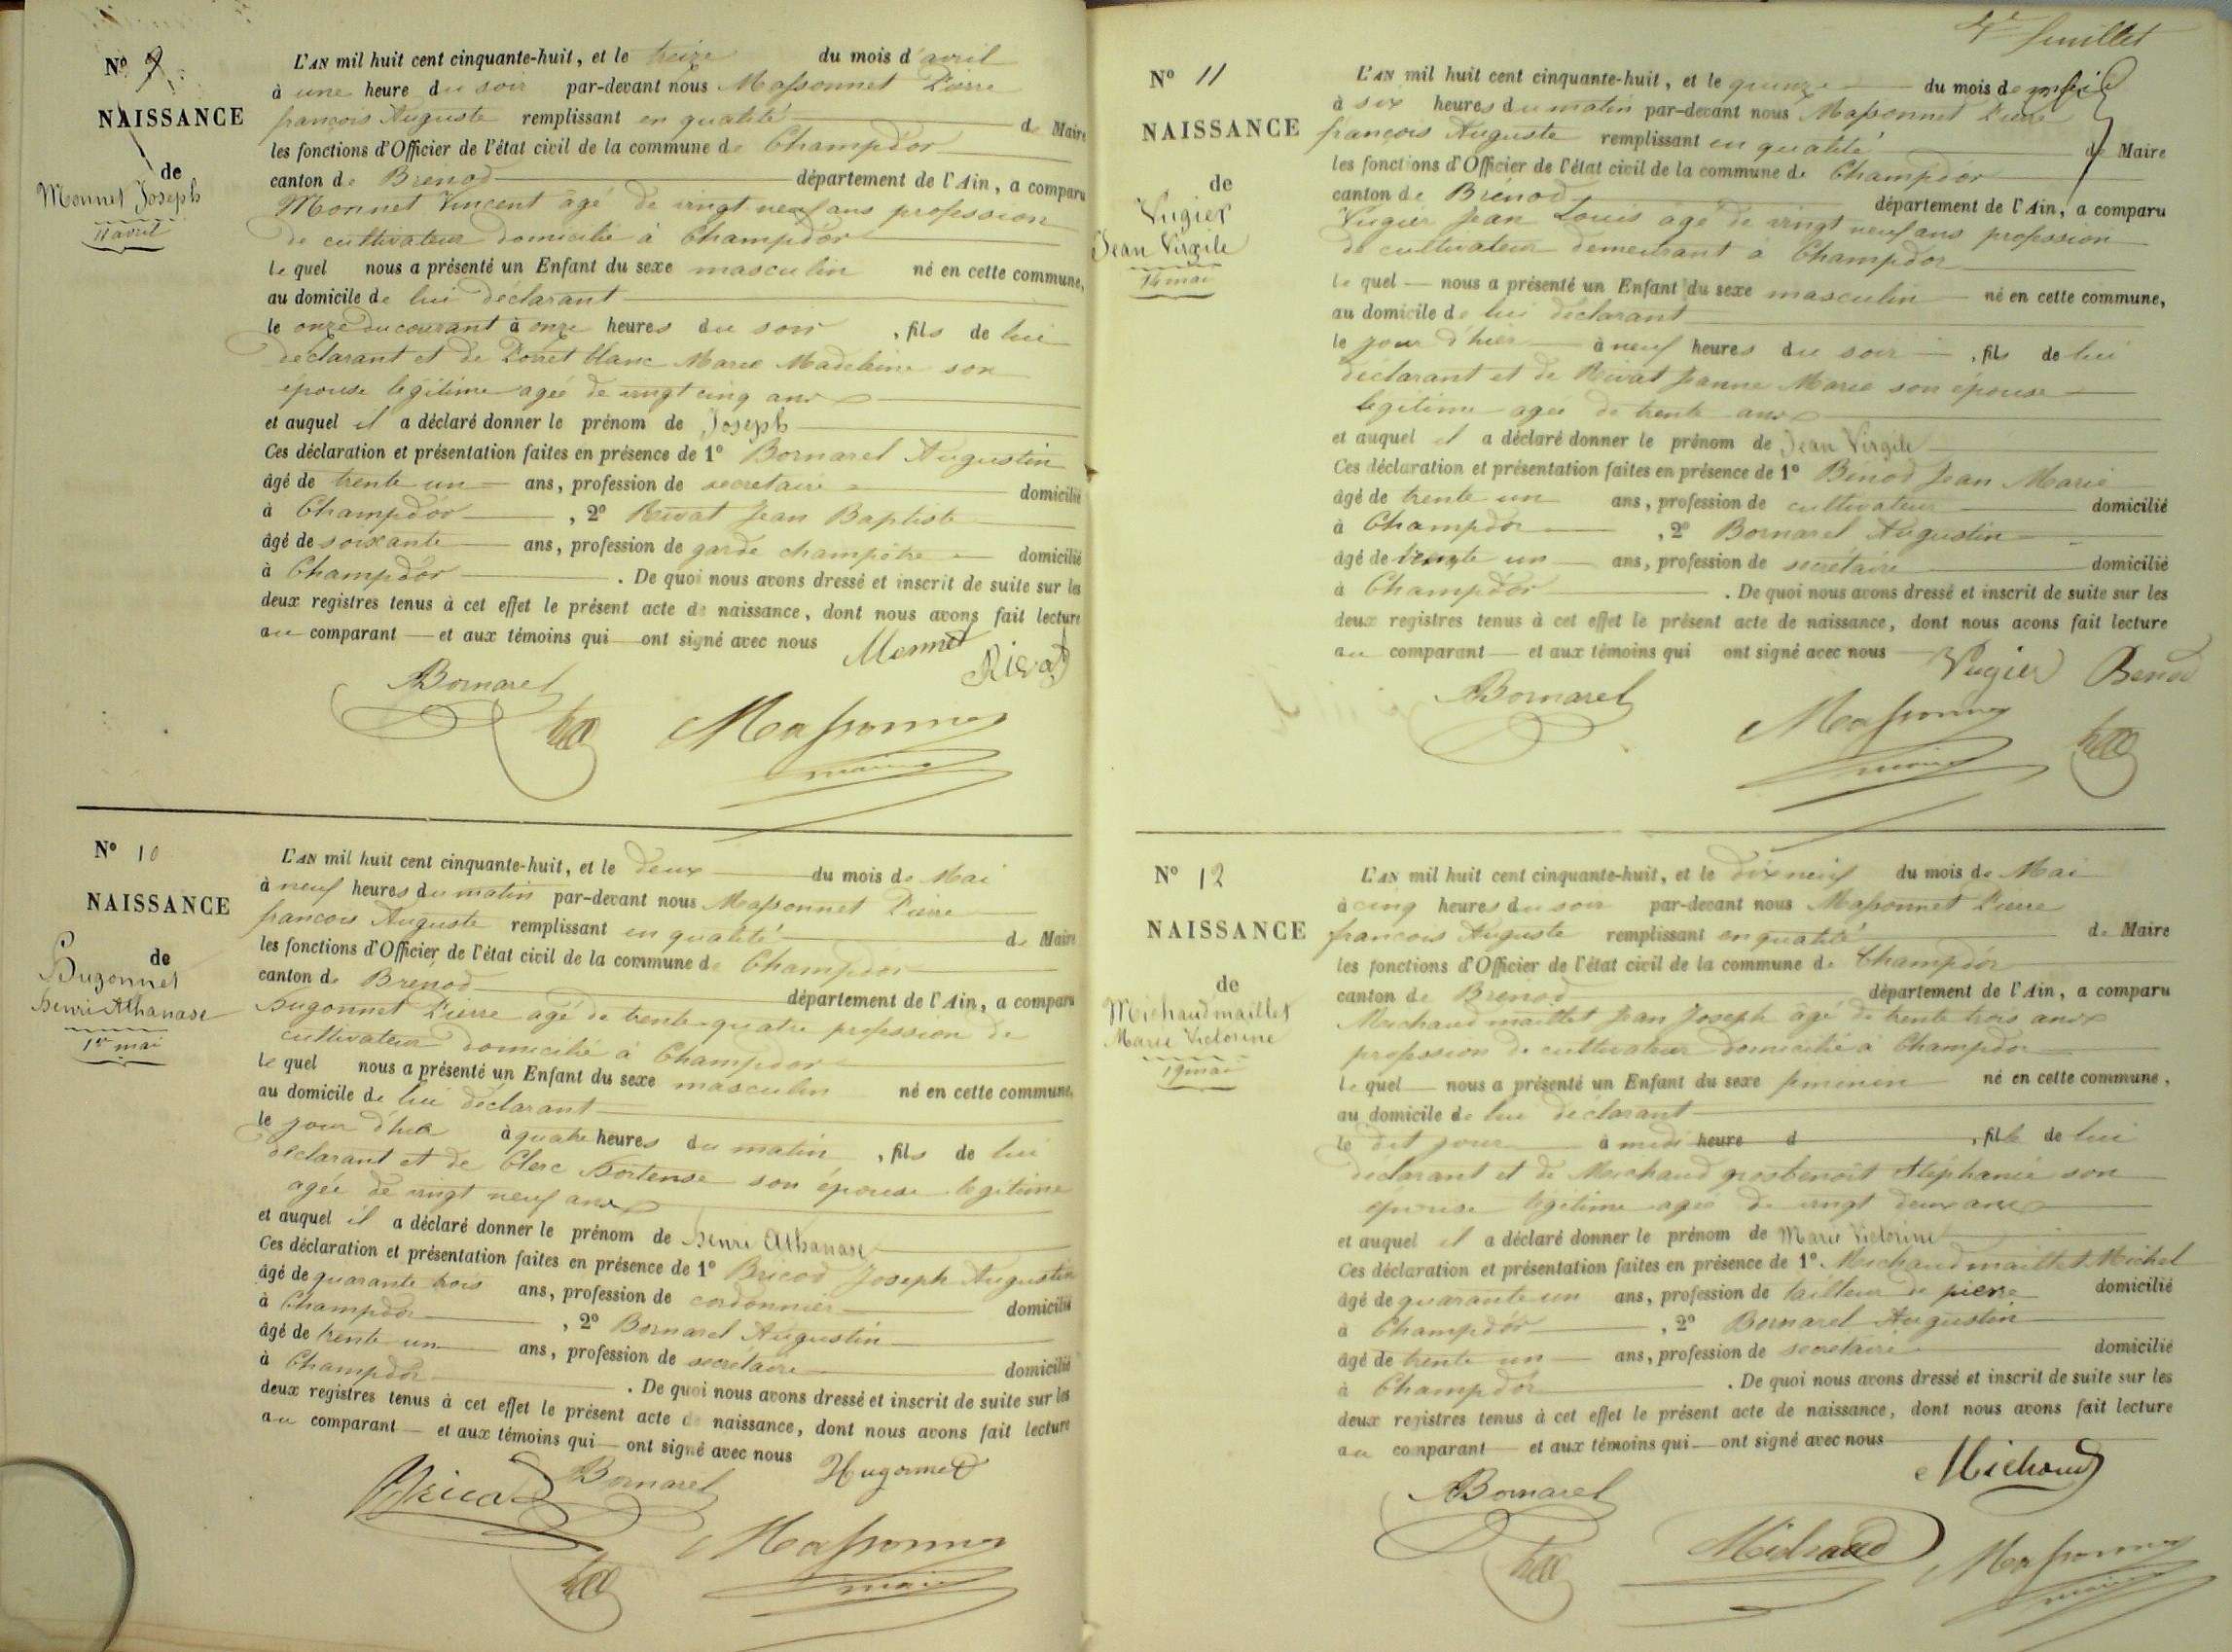 N.º 9
NAISSANCE
de
Monnet Joseph
11 avril
L'AN mil huit cent cinquante-huit, et le treize du mois d'avril
à une heure du soir par-devant nous Massonnet Pierre
françois Auguste remplissant en qualité de Maire
les fonctions d'Officier de l'état civil de la commune de Champdor
canton de Brenod département de l'Ain, a comparu
Monnet Vincent âgé de vingt neuf ans profession
de cultivateur domicilié à Champdor
le quel nous a présenté un Enfant du sexe masculin né en cette commune,
au domicile de lui déclarant
le onze du courant à onze heures du soir, fils de lui
déclarant et de Porret blanc Marie Madelaine son
épouse légitime agée de vingt cinq ans
et auquel il a déclaré donner le prénom de Joseph
Ces déclaration et présentation faites en présence de 1º Bornarel Augustin
âgé de trente un ans, profession de secretaire domicilié
à Champdor, 2º Rivat Jean Baptiste
âgé de soixante ans, profession de garde champêtre domicilié
à Champdor. De quoi nous avons dressé et inscrit de suite sur les
deux registres tenus à cet effet le présent acte de naissance, dont nous avons fait lecture
au comparant et aux témoins qui ont signé avec nous Monnet
Rivat
ABornarel
Massonnet
maire
N.º 10
NAISSANCE
de
Hugonnet
henri Athanase
1er mai
L'AN mil huit cent cinquante-huit, et le deux du mois de Mai
à neuf heures du matin par-devant nous Massonnet Pierre
francois Auguste remplissant en qualité de Maire
les fonctions d'Officier de l'état civil de la commune de Champdor
canton de Brénod département de l'Ain, a comparu
Hugonnet Pierre agé de trente quatre profession de
cultivateur domicilié à Champdor
le quel nous a présenté un Enfant du sexe masculin né en cette commune,
au domicile de lui déclarant
le jour d'hier à quatre heures du matin, fils de lui
déclarant et de Clerc Hortense son épouse légitime
agée de vingt neuf ans
et auquel il a déclaré donner le prénom de henri Athanase
Ces déclaration et présentation faites en présence de 1º Bricod Joseph Augustin
âgé de quarante trois ans, profession de cordonnier domicilié
à Champdor, 2º Bornarel Augustin
âgé de trente un ans, profession de secrétaire domicilié
à Champdor. De quoi nous avons dressé et inscrit de suite sur les
deux registres tenus à cet effet le présent acte de naissance, dont nous avons fait lecture
au comparant et aux témoins qui ont signé avec nous Hugonnet
Bricod ABornarel
Massonnet
maire
4e feuillet
N.º 11
NAISSANCE
de
Vugier
Jean Virgile
14 mai
L'AN mil huit cent cinquante-huit, et le quinze du mois de
à six heures du matin par-devant nous Massonnet Pierre
françois Auguste remplissant en qualité de Maire
les fonctions d'Officier de l'état civil de la commune de Champdor
canton de Brénod département de l'Ain, a comparu
Vugier Jean Louis agé de vingt neuf ans profession
de cultivateur demeurant à Champdor
le quel nous a présenté un Enfant du sexe masculin né en cette commune,
au domicile de lui déclarant
le jour d'hier à neuf heures du soir, fils de lui
déclarant et de Rivat Jeanne Marie son épouse
légitime agée de trente ans
et auquel il a déclaré donner le prénom de Jean Virgile
Ces déclaration et présentation faites en présence de 1º Bénod Jean Marie
âgé de trente un ans, profession de cultivateur domicilié
à Champdor, 2º Bornarel Augustin
âgé de trente un ans, profession de secrétaire domicilié
à Champdor. De quoi nous avons dressé et inscrit de suite sur les
deux registres tenus à cet effet le présent acte de naissance, dont nous avons fait lecture
au comparant et aux témoins qui ont signé avec nous Vugier Benod
ABornarel
Massonnet
maire
N.º 12
NAISSANCE
de
Michaud maillet
Marie Victorine
19 mai
L'AN mil huit cent cinquante-huit, et le dix neuf du mois de Mai
à cinq heures du soir par-devant nous Massonnet Pierre
francois Auguste remplissant en qualité de Maire
les fonctions d'Officier de l'état civil de la commune de Champdor
canton de Brénod département de l'Ain, a comparu
Michaud maillet Jean Joseph âgé de trente trois ans
profession de cultivateur domicilié à Champdor
le quel nous a présenté un Enfant du sexe féminin né en cette commune,
au domicile de lui déclarant
le dit jour à midi heure d, fille de lui
déclarant et de Michaud grosbenoit Stéphanie son
épouse légitime agée de vingt deux ans
et auquel il a déclaré donner le prénom de Marie Victorine
Ces déclaration et présentation faites en présence de 1º Michaud maillet Michel
âgé de quarante un ans, profession de tailleur de pierre domicilié
à Champdor, 2º Bornarel Augustin
âgé de trente un ans, profession de secrétaire domicilié
à Champdor. De quoi nous avons dressé et inscrit de suite sur les
deux registres tenus à cet effet le présent acte de naissance, dont nous avons fait lecture
au comparant et aux témoins qui ont signé avec nous
Michaud
ABornarel
Michaud
Massonnet
maire